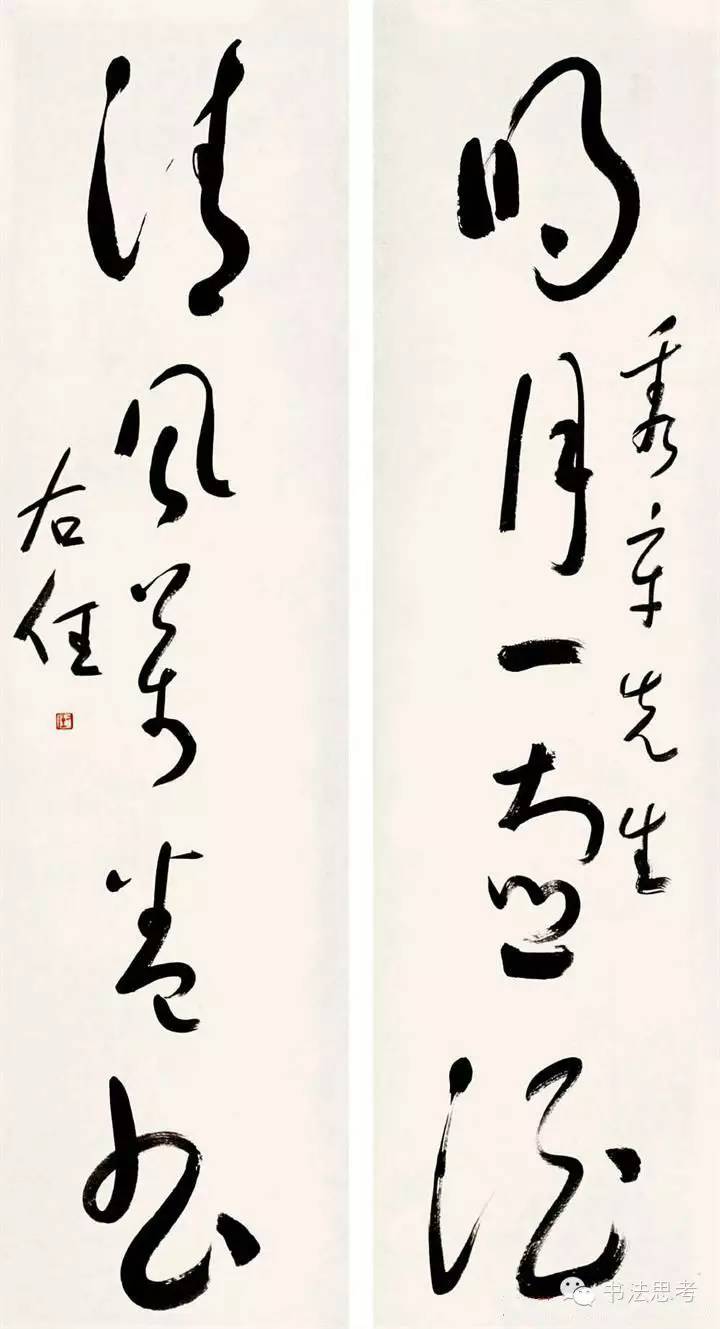 明月一壺酒
先生
清風萬卷書
右任
书法思考